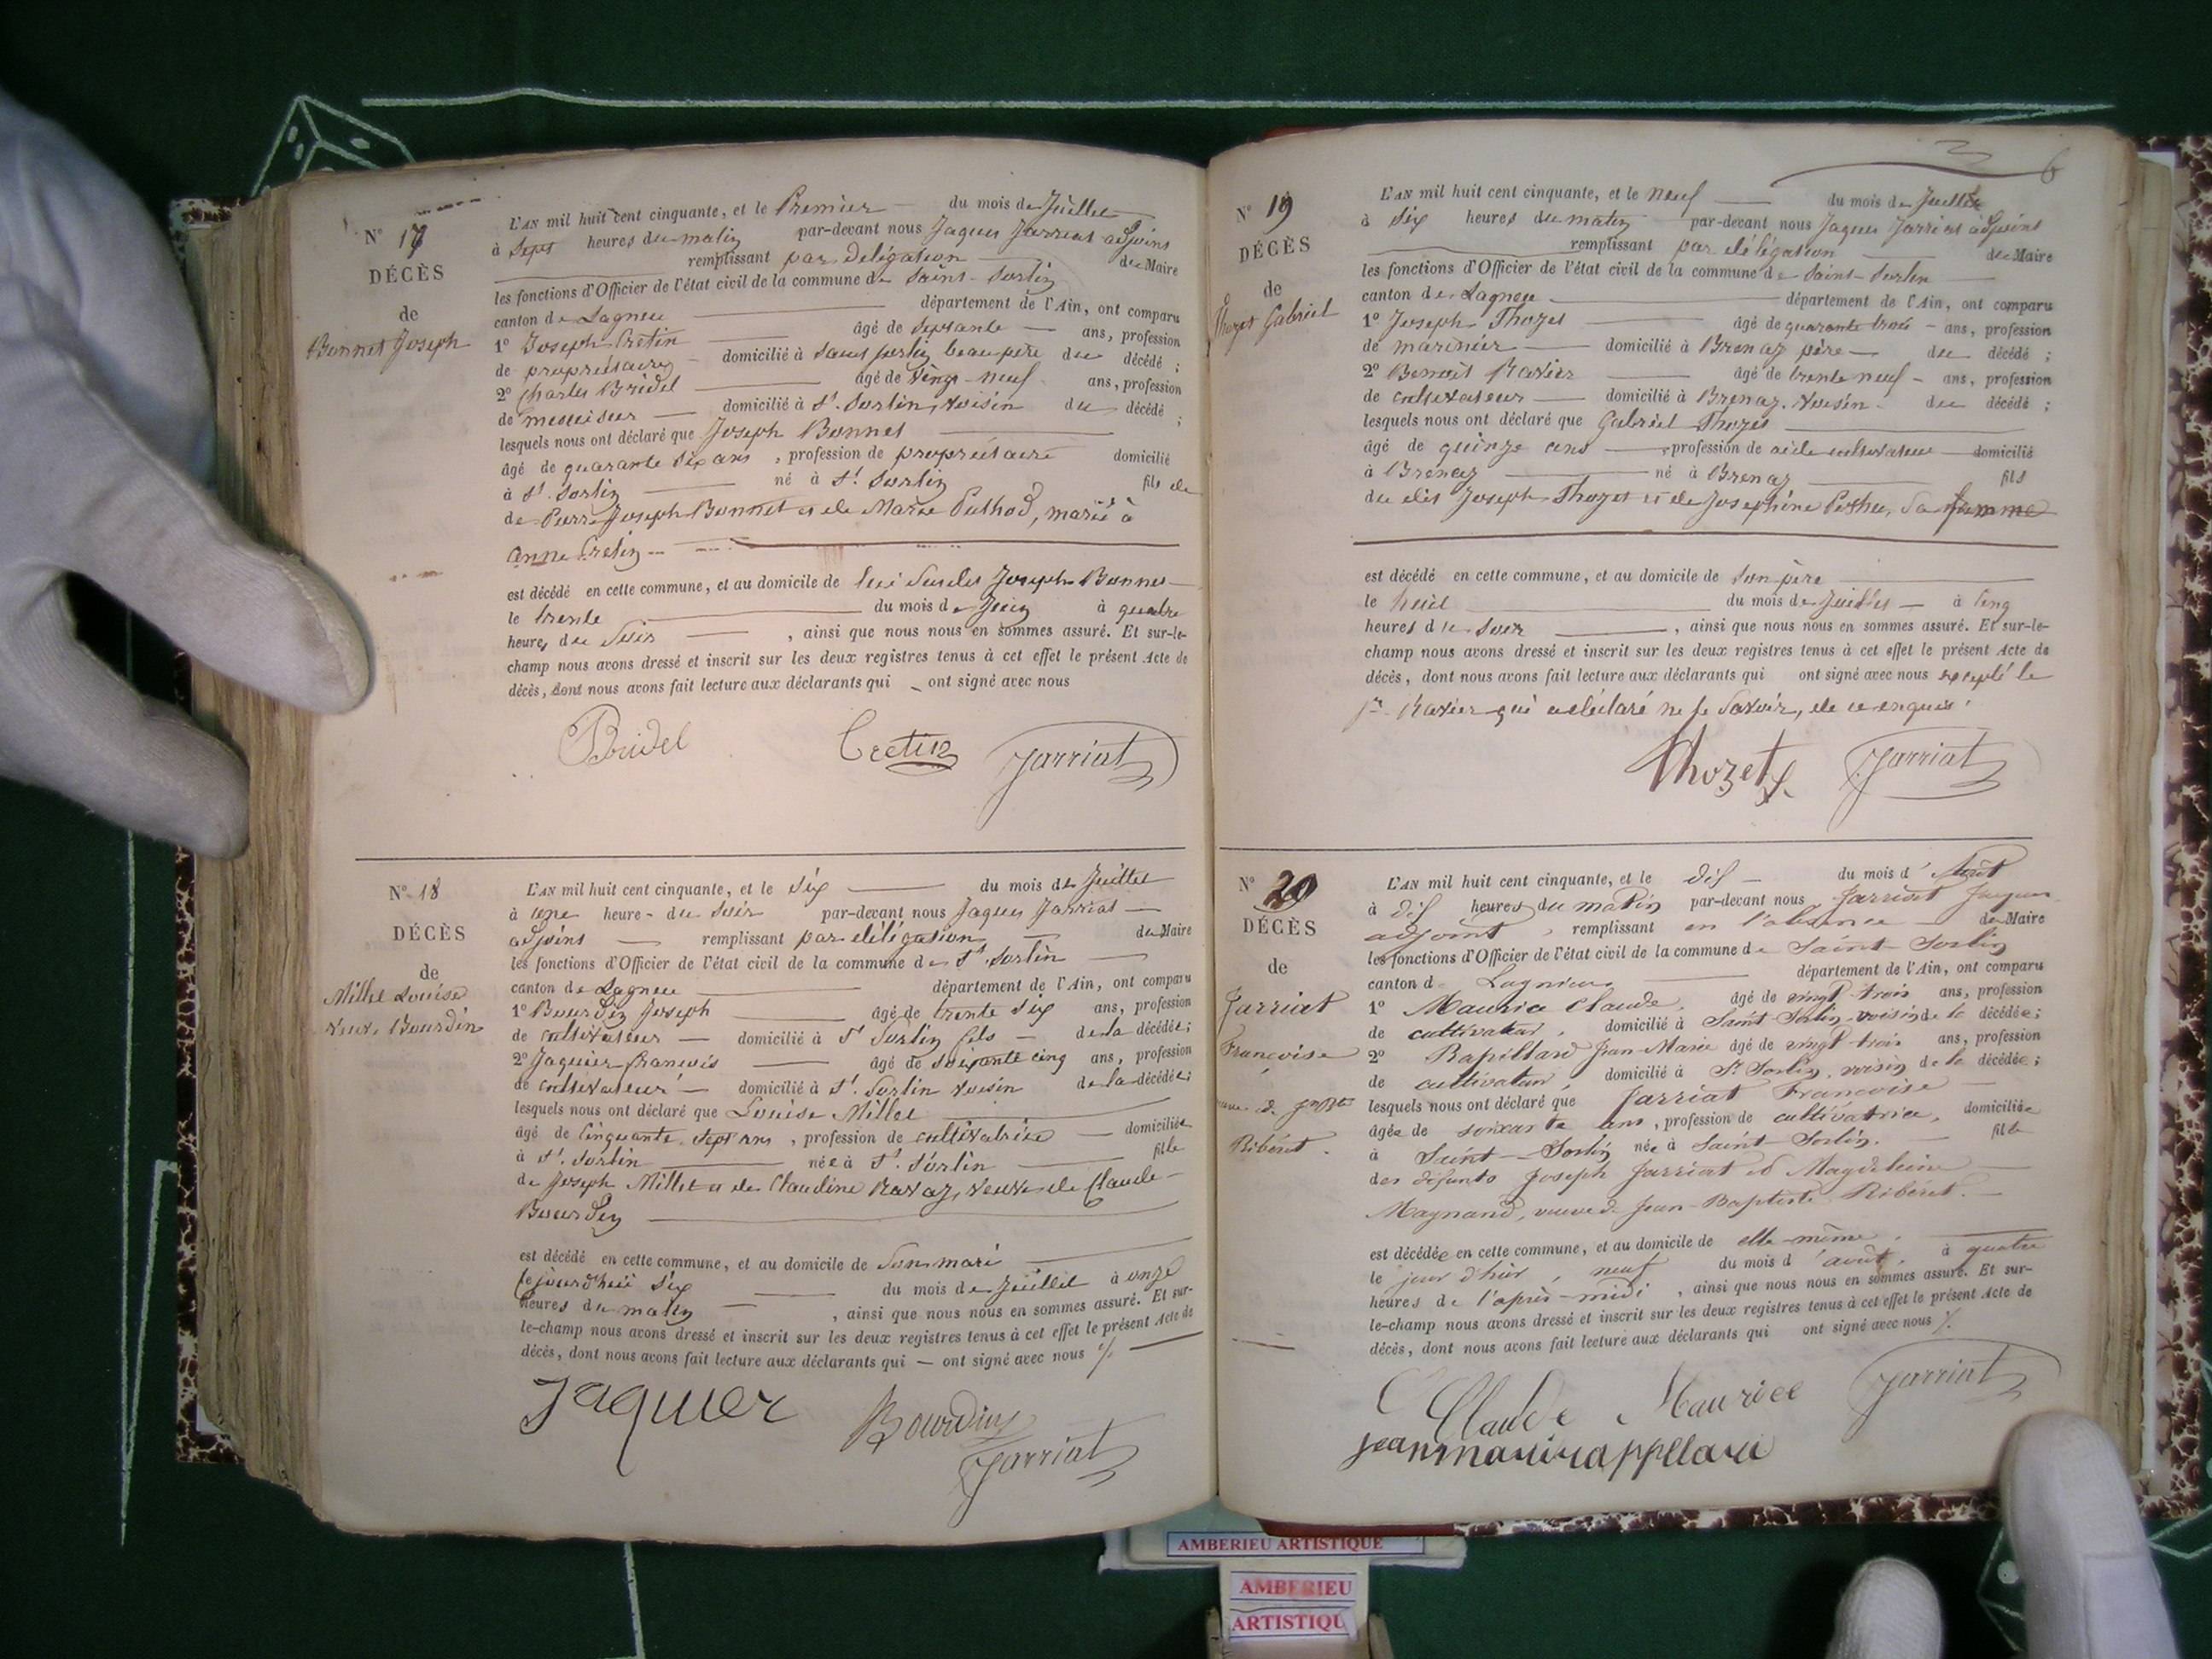 N° 17
DÉCÈS
de
Bonnet Joseph
L'AN mil huit cent cinquante, et le Premier du mois de Juillet
à Sept heures du matin par-devant nous Jaques Jarriat adjoint
remplissant par délégation du Maire
les fonctions d'Officier de l'état civil de la commune de Saint-Sorlin
canton de Lagneu département de l'Ain, ont comparu
1° Joseph Cretin âgé de septante ans, profession
de propriétaire domicilié à Saint Sorlin beau père du décédé ;
2° Charles Bridel âgé de vingt-neuf ans, profession
de menuisier domicilié à St. Sorlin, voisin du décédé ;
lesquels nous ont déclaré que Joseph Bonnet
âgé de quarante six ans, profession de propriétaire domicilié
à St. Sorlin né à St. Sorlin fils de
de Pierre Joseph Bonnet et de Marie Puthod, marié à
anne Cretin
est décédé en cette commune, et au domicile de lui Joseph Bonnet
le trente du mois de Juin à quatre
heures du Soir, ainsi que nous nous en sommes assuré. Et sur-le-
champ nous avons dressé et inscrit sur les deux registres tenus à cet effet le présent Acte de
décès, dont nous avons fait lecture aux déclarants qui ont signé avec nous
Bridel Cretin Jarriat
N° 18
DÉCÈS
de
Millet Louise
veuve Bourdin
L'AN mil huit cent cinquante, et le Six du mois de Juillet
à une heure du Soir par-devant nous Jaques Jarriat
adjoint remplissant par délégation du Maire
les fonctions d'Officier de l'état civil de la commune de St. Sorlin
canton de Lagneu département de l'Ain, ont comparu
1° Bourdin Joseph âgé de trente Six ans, profession
de cultivateur domicilié à St Sorlin fils de la décédée ;
2° Jaquier francois âgé de soixante cinq ans, profession
de cultivateur domicilié à St. Sorlin voisin de la décédée ;
lesquels nous ont déclaré que Louise Millet
âgé de Cinquante Sept ans, profession de cultivatrice domiciliée
à St. Sorlin née à St. Sorlin fille
de Joseph Millet et de Claudine Ravaz, veuve de Claude
Bourdin
est décédé en cette commune, et au domicile de Son mari
le jourd'hui Six du mois de Juillet à onze
heures du matin, ainsi que nous nous en sommes assuré. Et sur-
le-champ nous avons dressé et inscrit sur les deux registres tenus à cet effet le présent Acte de
décès, dont nous avons fait lecture aux déclarants qui — ont signé avec nous
Jaquier Bourdin
Jarriat
6
N° 19
DÉCÈS
de
Thozet Gabriel
L'AN mil huit cent cinquante, et le neuf du mois de Juillet
à Six heures du matin par-devant nous Jaques Jarriat adjoint
remplissant par délégation du Maire
les fonctions d'Officier de l'état civil de la commune de Saint-Sorlin
canton de Lagneu département de l'Ain, ont comparu
1° Joseph Thozet âgé de quarante trois ans, profession
de marinier domicilié à Brenaz père du décédé ;
2° Benoit Ravier âgé de trente neuf ans, profession
de cultivateur domicilié à Brenaz, voisin du décédé ;
lesquels nous ont déclaré que Gabriel Thozet
âgé de quinze ans, profession de aide cultivateur domicilié
à Brenaz né à Brenaz fils
du dit Joseph Thozet et de Josephine sa femme
est décédé en cette commune, et au domicile de Son père
le huit du mois de Juillet à Cinq
heures du Soir, ainsi que nous nous en sommes assuré. Et sur-le-
champ nous avons dressé et inscrit sur les deux registres tenus à cet effet le présent Acte de
décès, dont nous avons fait lecture aux déclarants qui ont signé avec nous excepté le
Sr. Ravier qui a déclaré ne le Savoir, de ce enquis.
Thozet Jarriat
N° 20
DÉCÈS
de
Jarriat
Francoise
veuve de Jn Bte
Ribéret.
L'AN mil huit cent cinquante, et le dix du mois d'Août
à dix heures du matin par-devant nous Jarriat Jaques
adjoint, remplissant en l'absence du Maire
les fonctions d'Officier de l'état civil de la commune de Saint-Sorlin
canton de Lagnieu département de l'Ain, ont comparu
1° Maurice Claude, âgé de vingt-trois ans, profession
de cultivateur, domicilié à Saint Sorlin, voisin de la décédée ;
2° Rapillard Jean-Marie âgé de vingt-trois ans, profession
de cultivateur, domicilié à St Sorlin, voisin de la décédée ;
lesquels nous ont déclaré que Jarriat Francoise
âgée de soixante ans, profession de cultivatrice, domiciliée
à Saint-Sorlin née à Saint-Sorlin. fille
des défunts Joseph Jarriat et Magdeleine
Maynand, veuve de Jean-Baptiste Ribéret.
est décédée en cette commune, et au domicile de elle-même.
le jour d'hier, neuf du mois d'août, à quatre
heures de l'après-midi, ainsi que nous nous en sommes assuré. Et sur-
le-champ nous avons dressé et inscrit sur les deux registres tenus à cet effet le présent Acte de
décès, dont nous avons fait lecture aux déclarants qui ont signé avec nous
Claude Maurice Jarriat
jeanmarirappelari
AMBERIEU ARTISTIQUE
AMBERIEU
ARTISTIQU